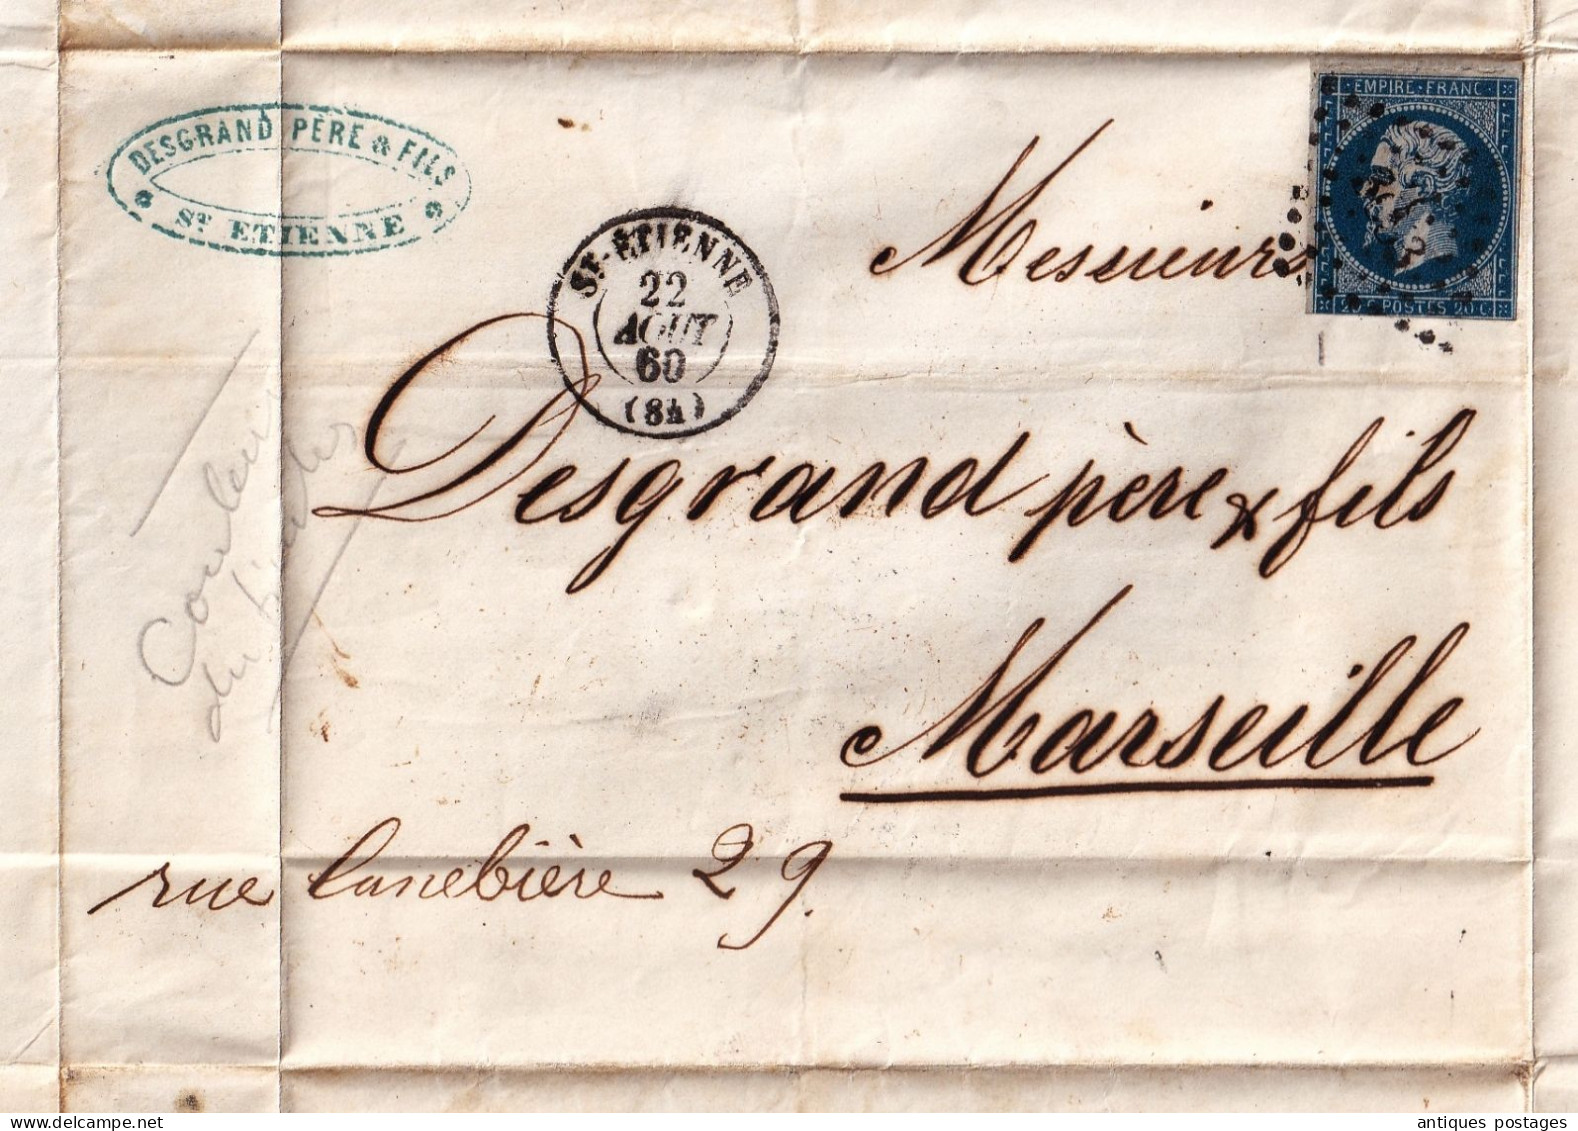 DESGRAND PÈRE & FILS
ST ETIENNE
ST-ÉTIENNE
22
AOUT
60
(84)
EMPIRE·FRANC·
20 C POSTES 20 C
Messieurs
Desgrand père & fils
Marseille
rue Canebière 29.
Couleur
du
antiques postages